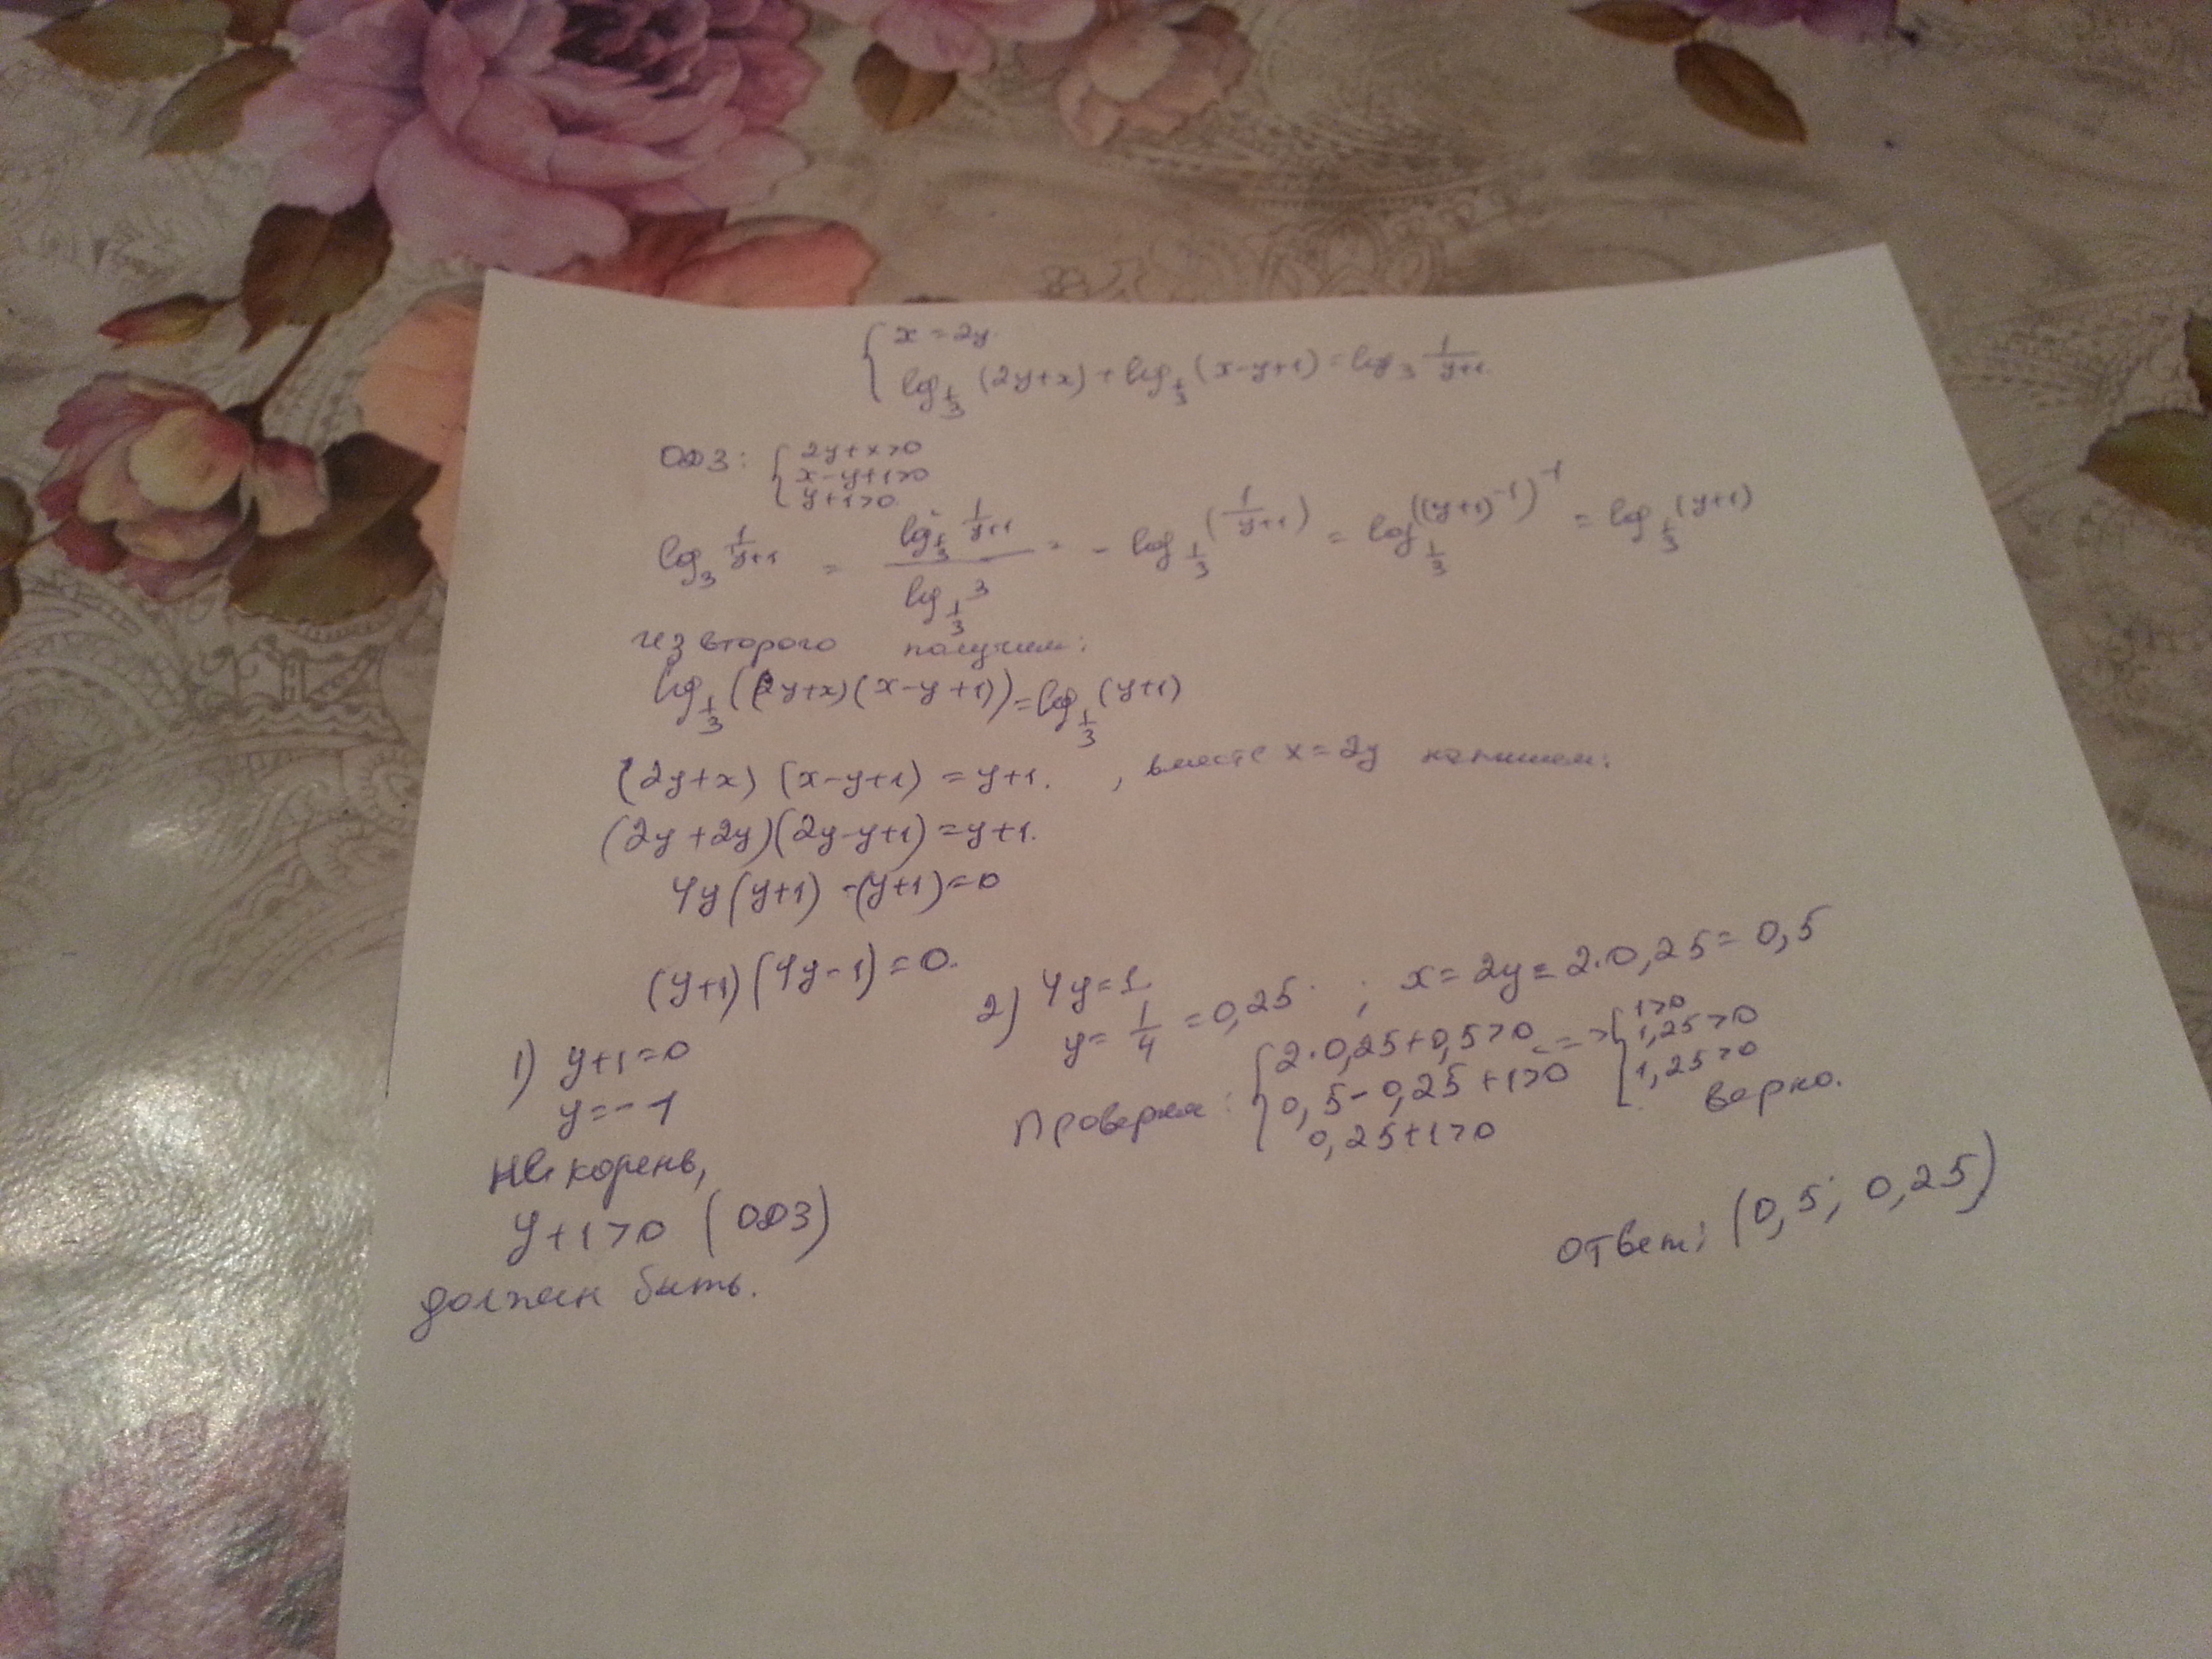 { x = 2y
log_{1/3} (2y+x) + log_{1/3} (x-y+1) = log_3 1/(y+1)
ОДЗ: { 2y+x>0
x-y+1>0
y+1>0
log_3 1/(y+1) = (log_{1/3} 1/(y+1)) / (log_{1/3} 3) = - log_{1/3} (1/(y+1)) = log_{1/3} ((y+1)^{-1})^{-1} = log_{1/3} (y+1)
из второго получим:
log_{1/3} ((2y+x)(x-y+1)) = log_{1/3} (y+1)
(2y+x) (x-y+1) = y+1. , вместе x=2y напишем:
(2y+2y)(2y-y+1) = y+1.
4y(y+1) -(y+1)=0
(y+1)(4y-1)=0.
1) y+1=0
y=-1
не корень,
y+1>0 (ОДЗ)
должен быть.
2) 4y=1
y= 1/4 = 0,25 ; x= 2y= 2·0,25= 0,5
Проверяем: { 2·0,25+0,5>0 => { 1>0
0,5-0,25+1>0 1,25>0
0,25+1>0 1,25>0
верно.
ответ: (0,5; 0,25)